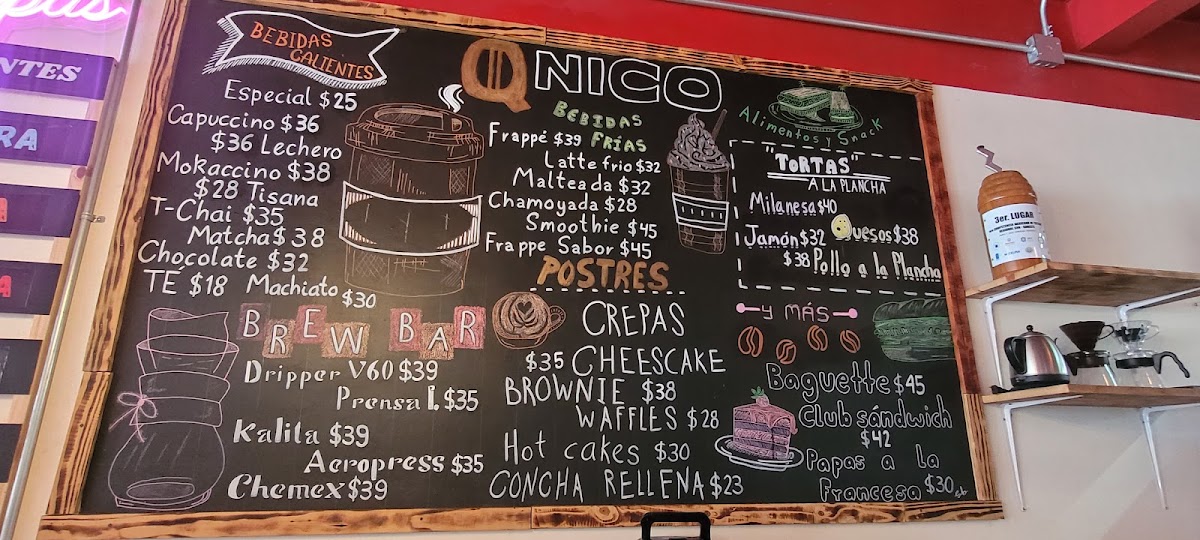 NTES
RA
A
A
BEBIDAS
CALIENTES
Especial $25
Capuccino $36
$36 Lechero
Mokaccino $38
$28 Tisana
T-Chai $35
Matcha $38
Chocolate $32
TÉ $18 Machiato $30
QNICO
BEBIDAS
FRÍAS
Frappé $39
Latte frio $32
Malteada $32
Chamoyada $28
Smoothie $45
Frappe Sabor $45
Alimentos y Snack
"TORTAS"
A LA PLANCHA
Milanesa $40
Jamón $32 Quesos $38
$38 Pollo a la Plancha
BREW BAR
Dripper V60 $39
Prensa I. $35
Kalita $39
Aeropress $35
Chemex $39
POSTRES
CREPAS
$35 CHEESCAKE
BROWNIE $38
WAFFLES $28
Hot cakes $30
CONCHA RELLENA $23
Y MÁS
Baguette $45
Club sándwich
$42
Papas a la
Francesa $30
3er. LUGAR